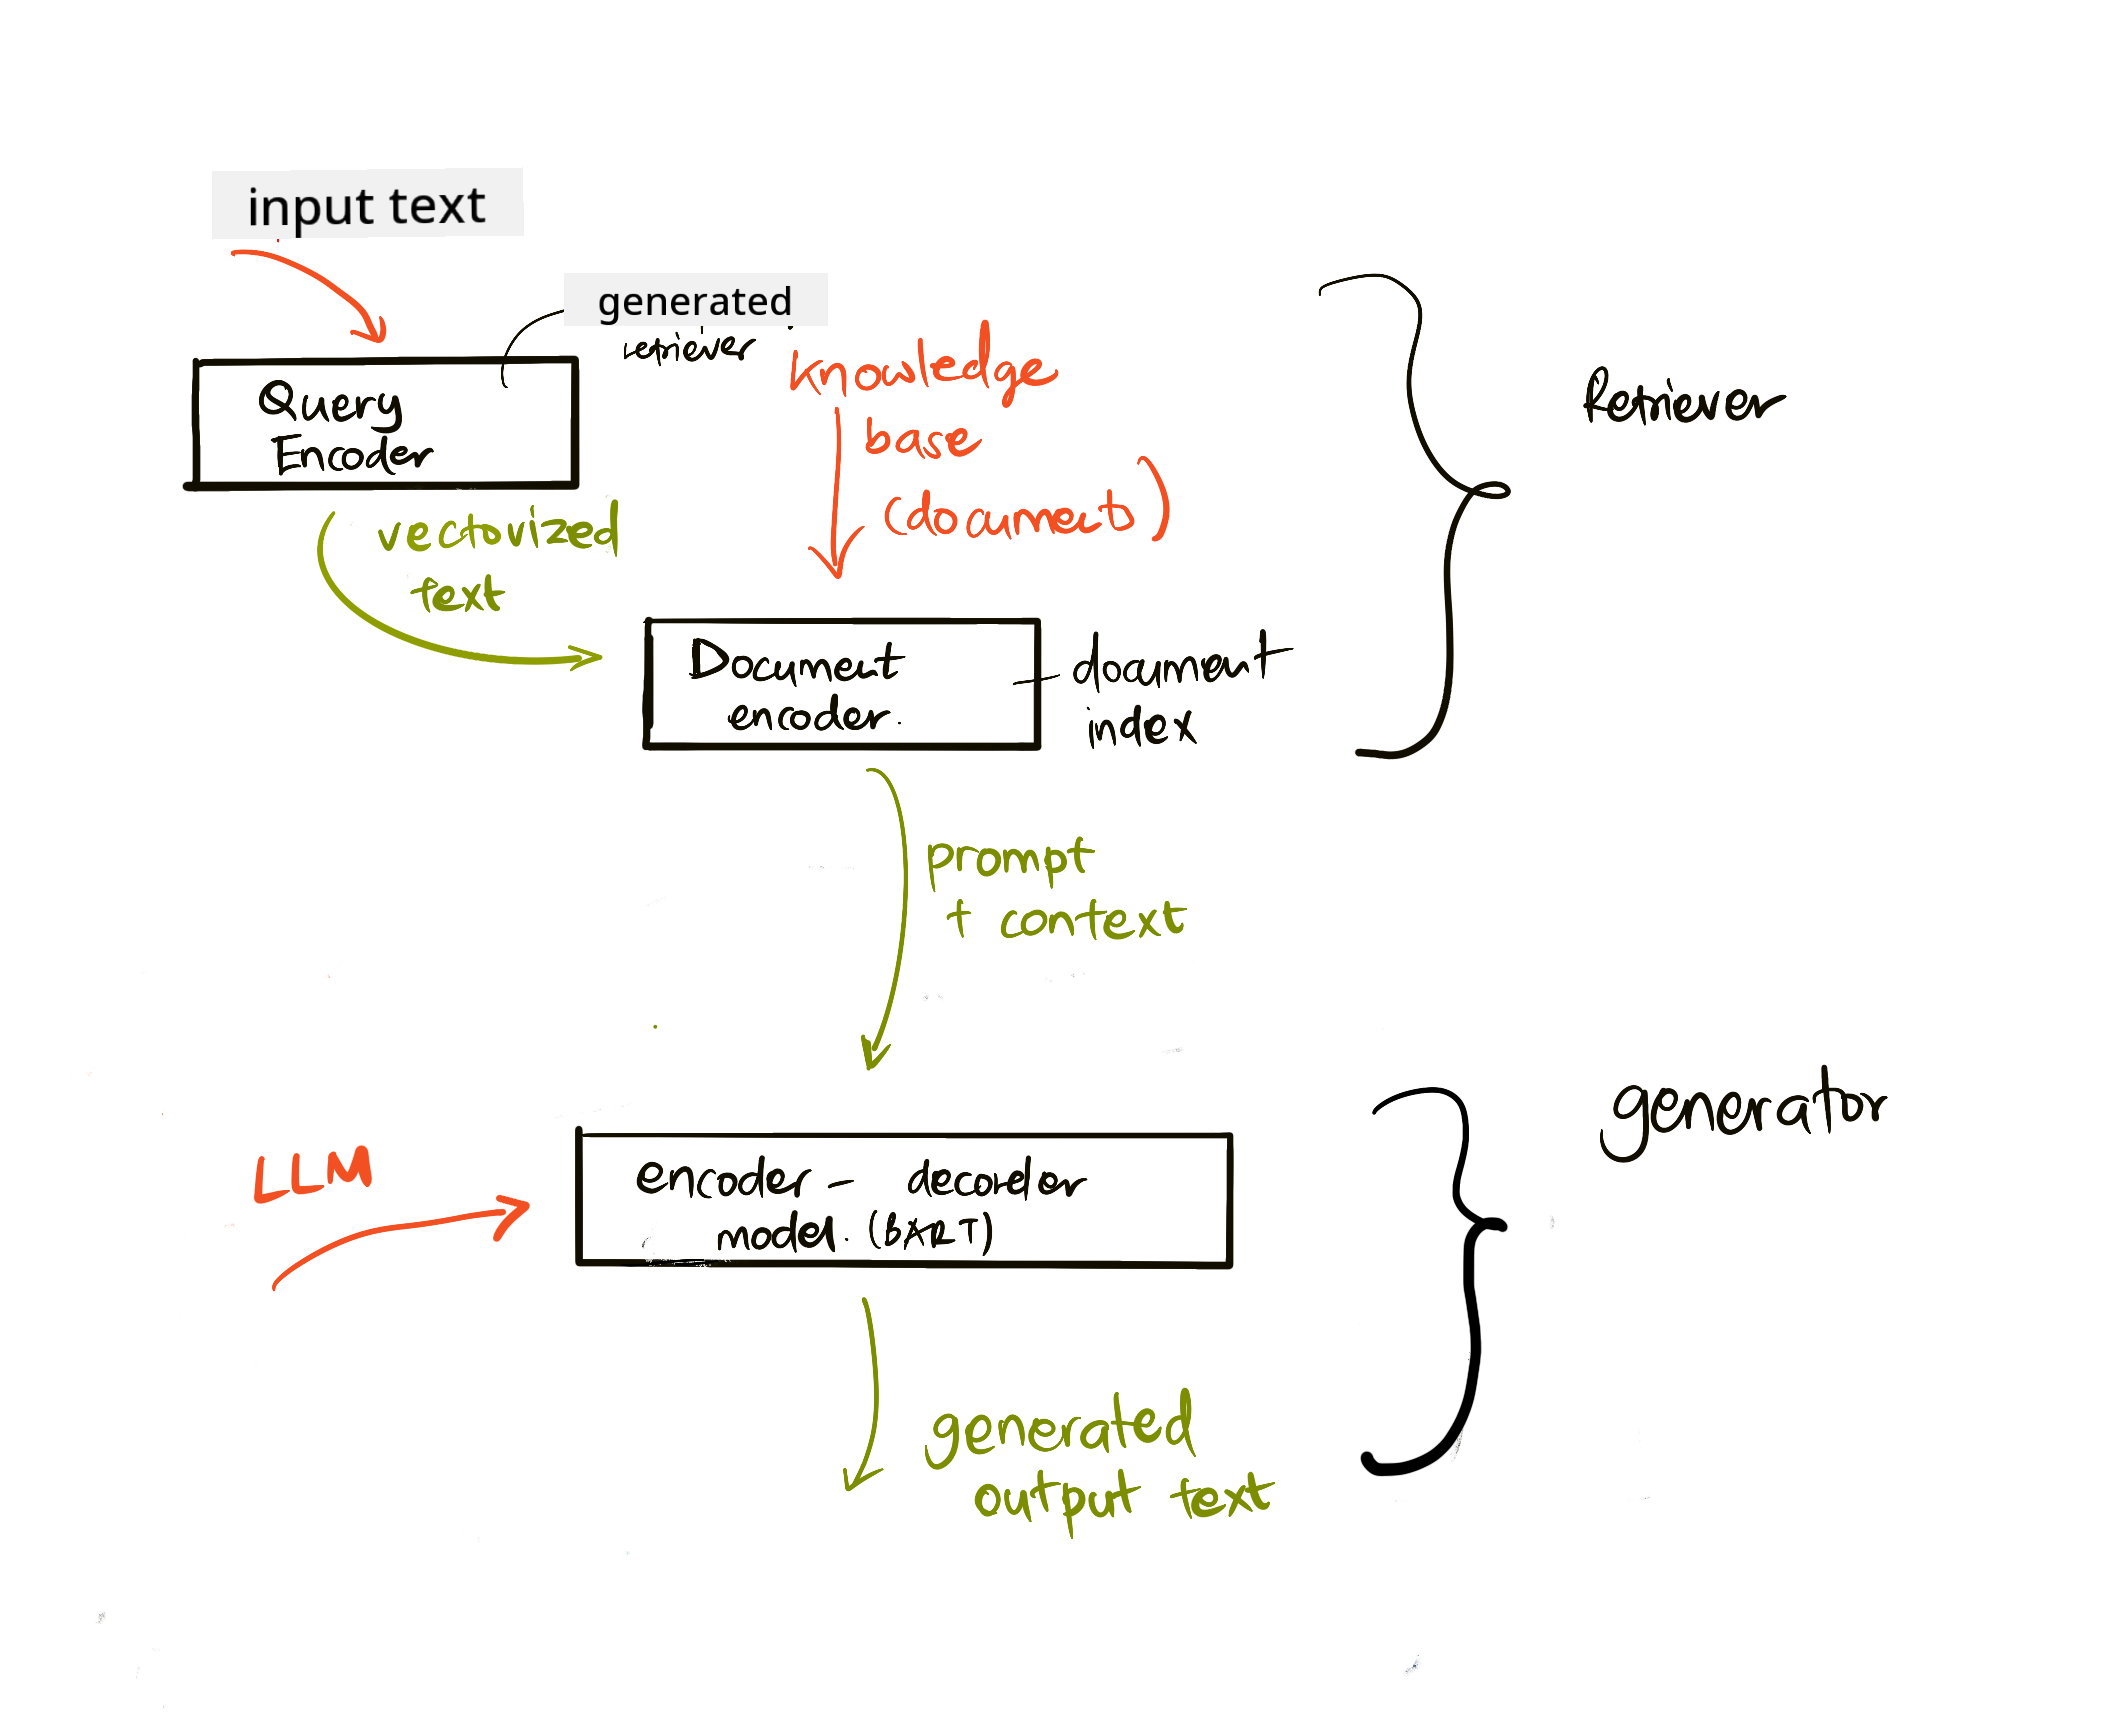 input text
generated
retriever
Query
Encoder
knowledge
base
(documents)
Retriever
vectorized
text
Document
encoder.
document
index
prompt
+ context
generator
LLM
encoder - decorder
model. (BART)
generated
output text